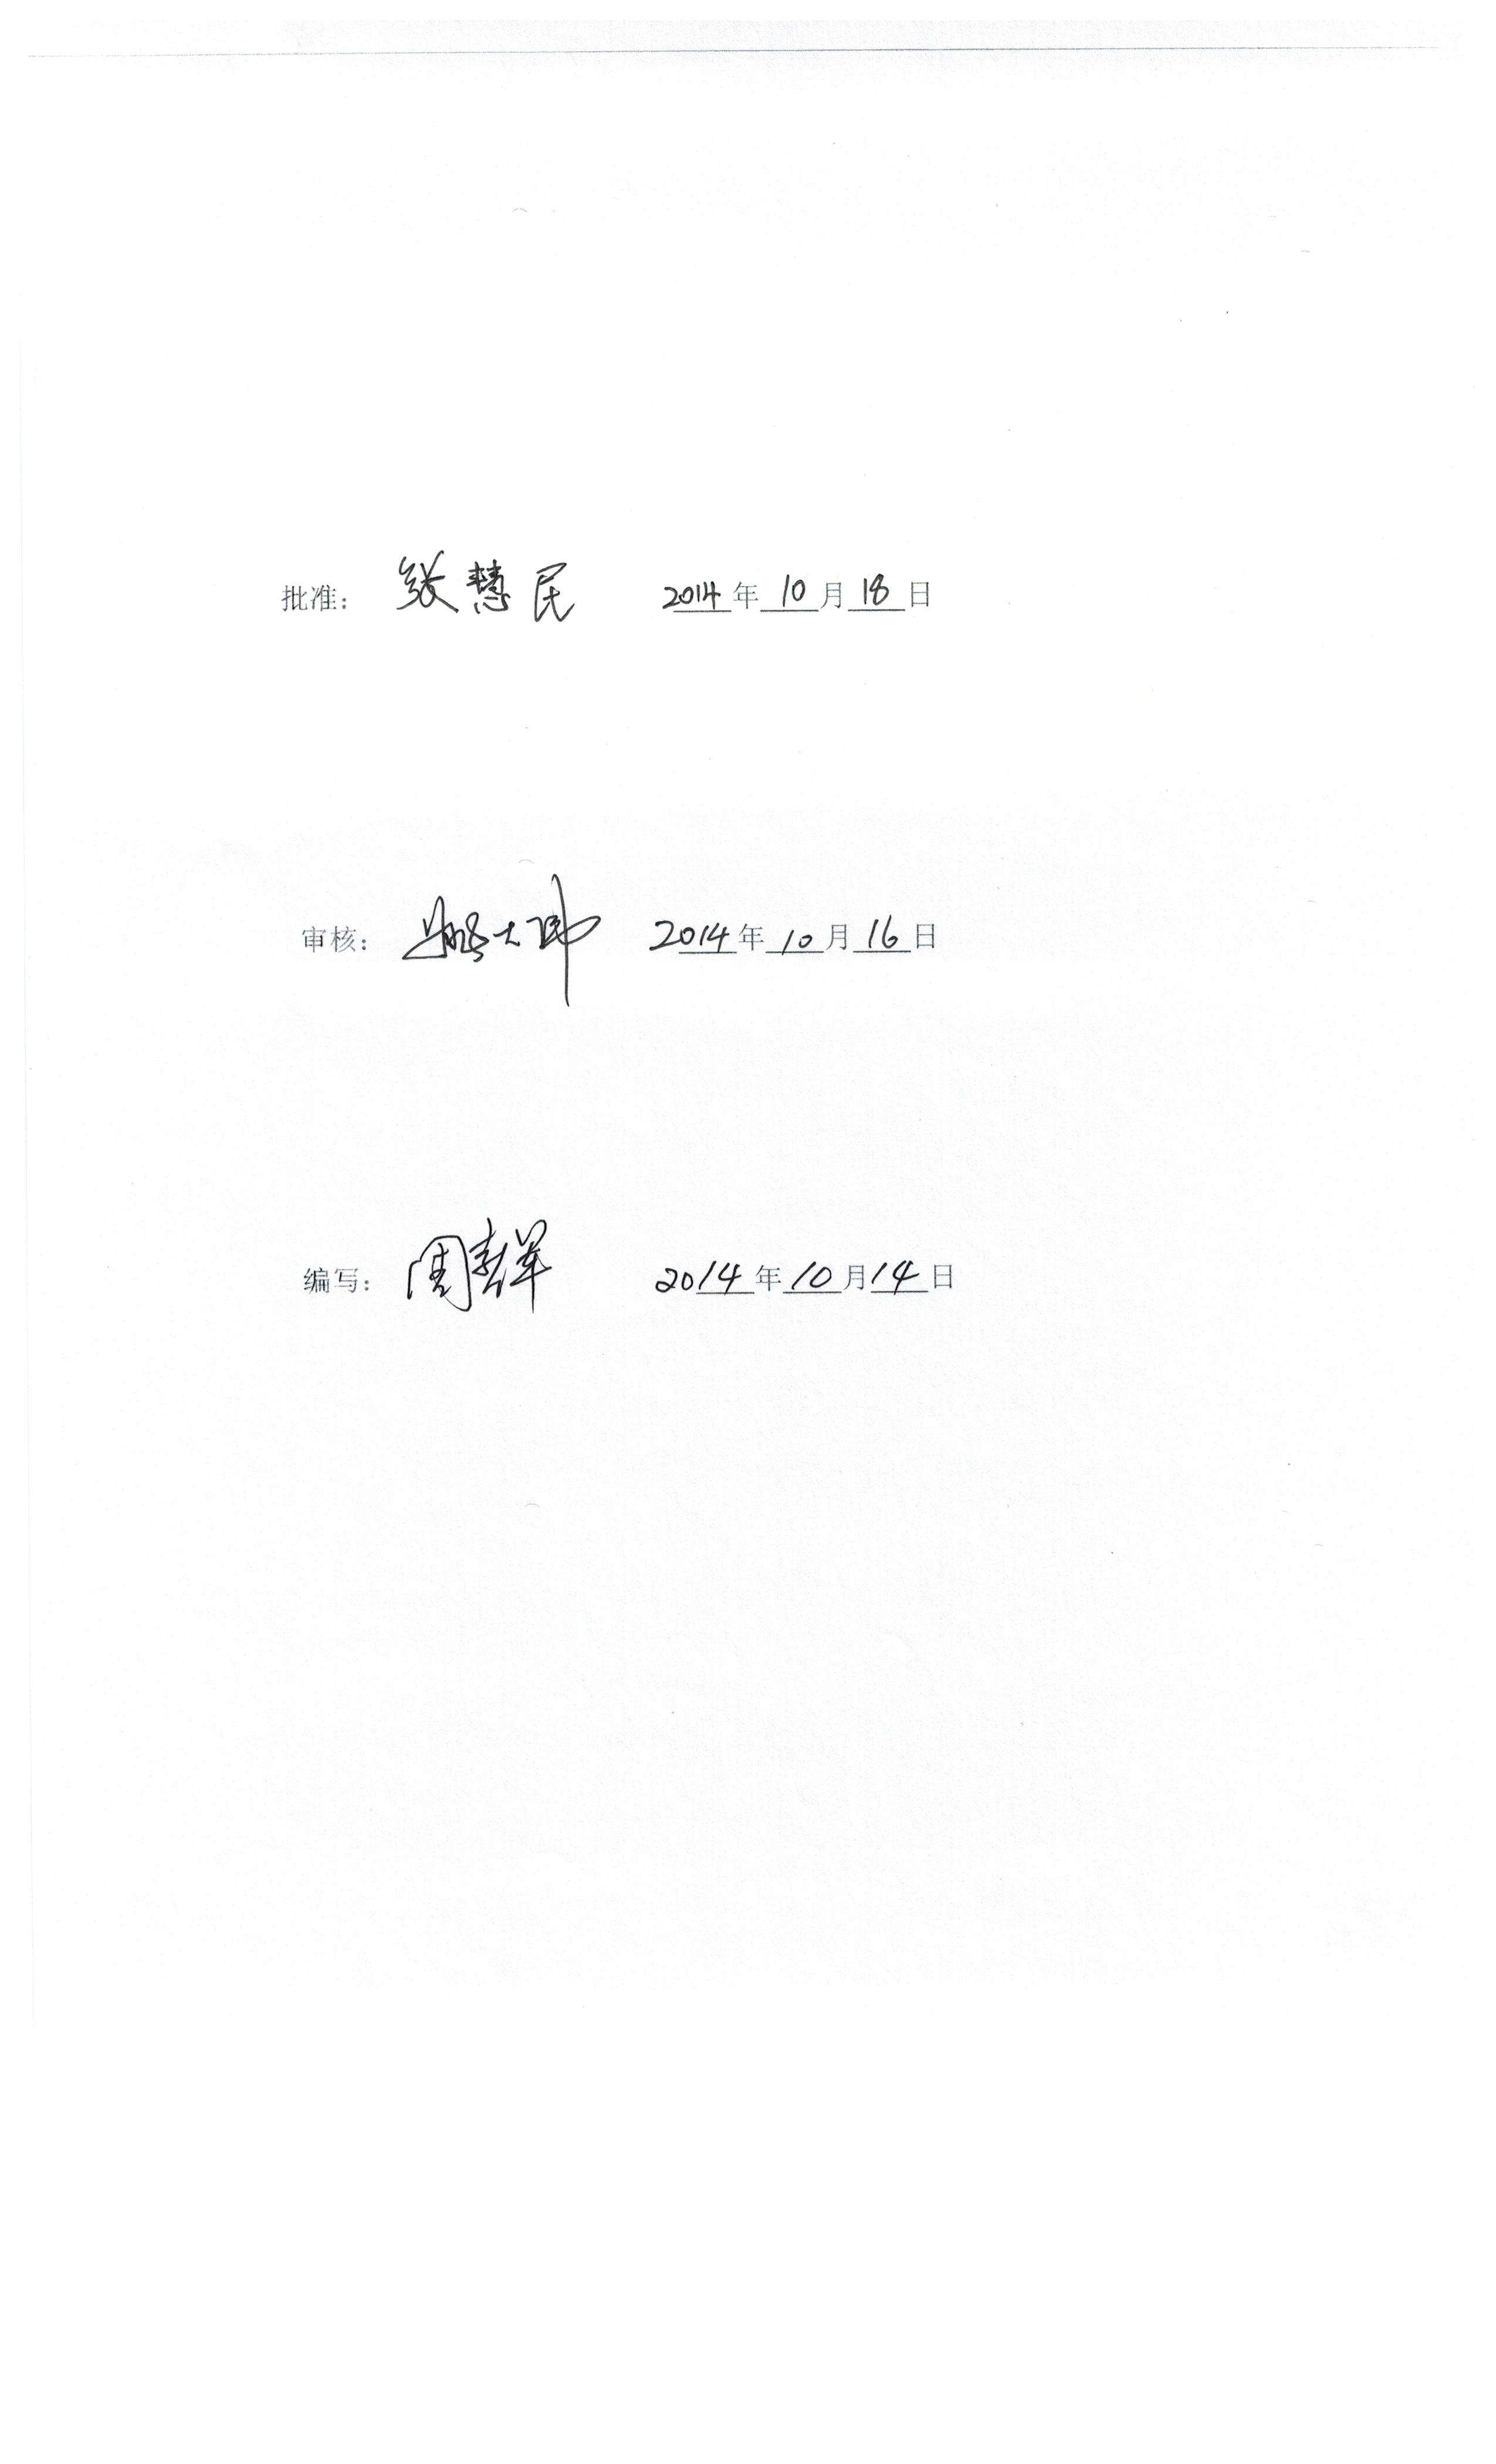 批准： 张慧民 2014年10月18日
审核： 2014年10月16日
编写： 周 2014年10月14日